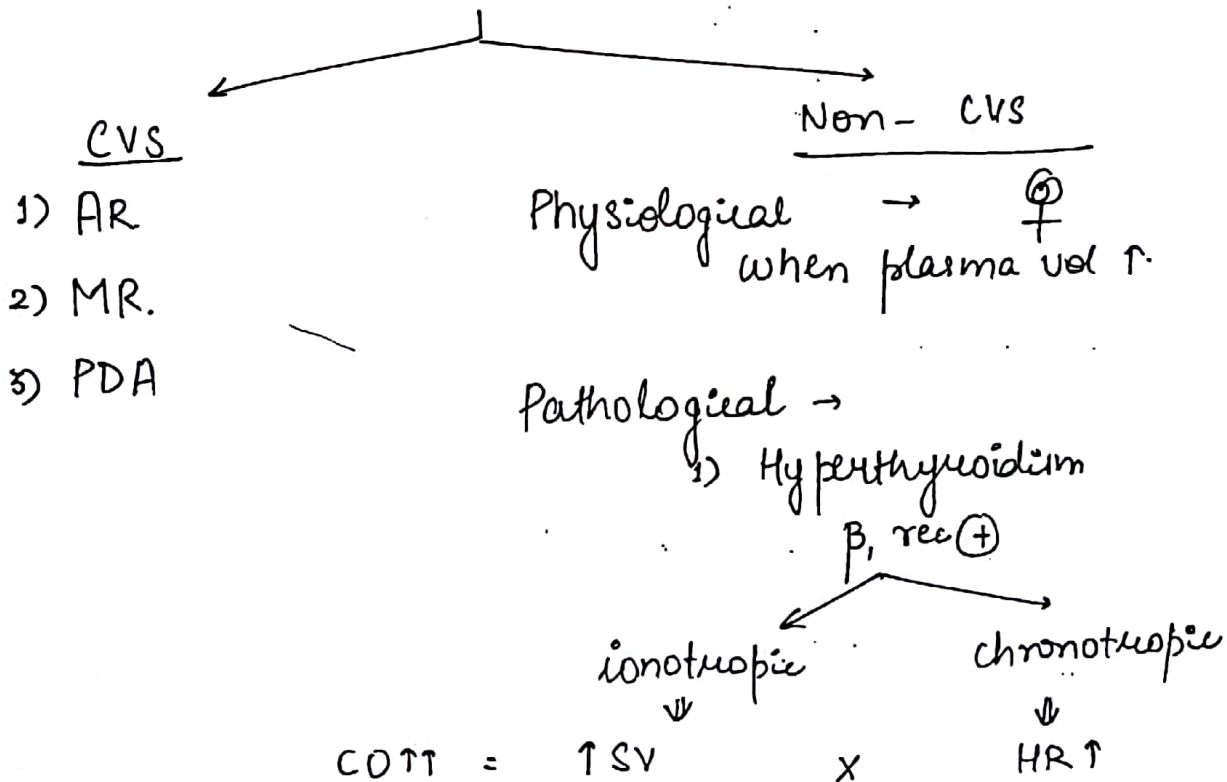 CVS
1) AR
2) MR.
3) PDA
Non - CVS
Physiological → ♀
when plasma vol ↑.
Pathological →
1) Hyperthyroidism
β₁ rec ⊕
ionotropic chronotropic
⇓ ⇓
CO↑↑ = ↑ SV x HR ↑